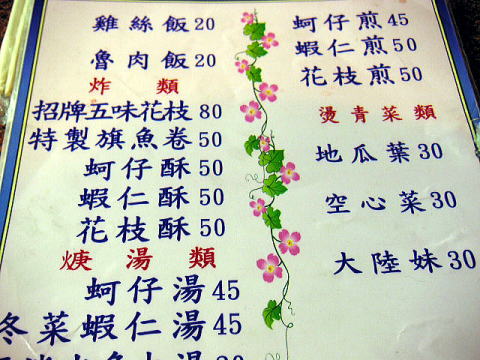 雞絲飯20
魯肉飯20
炸類
招牌五味花枝80
特製旗魚卷50
蚵仔酥50
蝦仁酥50
花枝酥50
焿湯類
蚵仔湯45
冬菜蝦仁湯45
蚵仔煎45
蝦仁煎50
花枝煎50
燙青菜類
地瓜葉30
空心菜30
大陸妹30